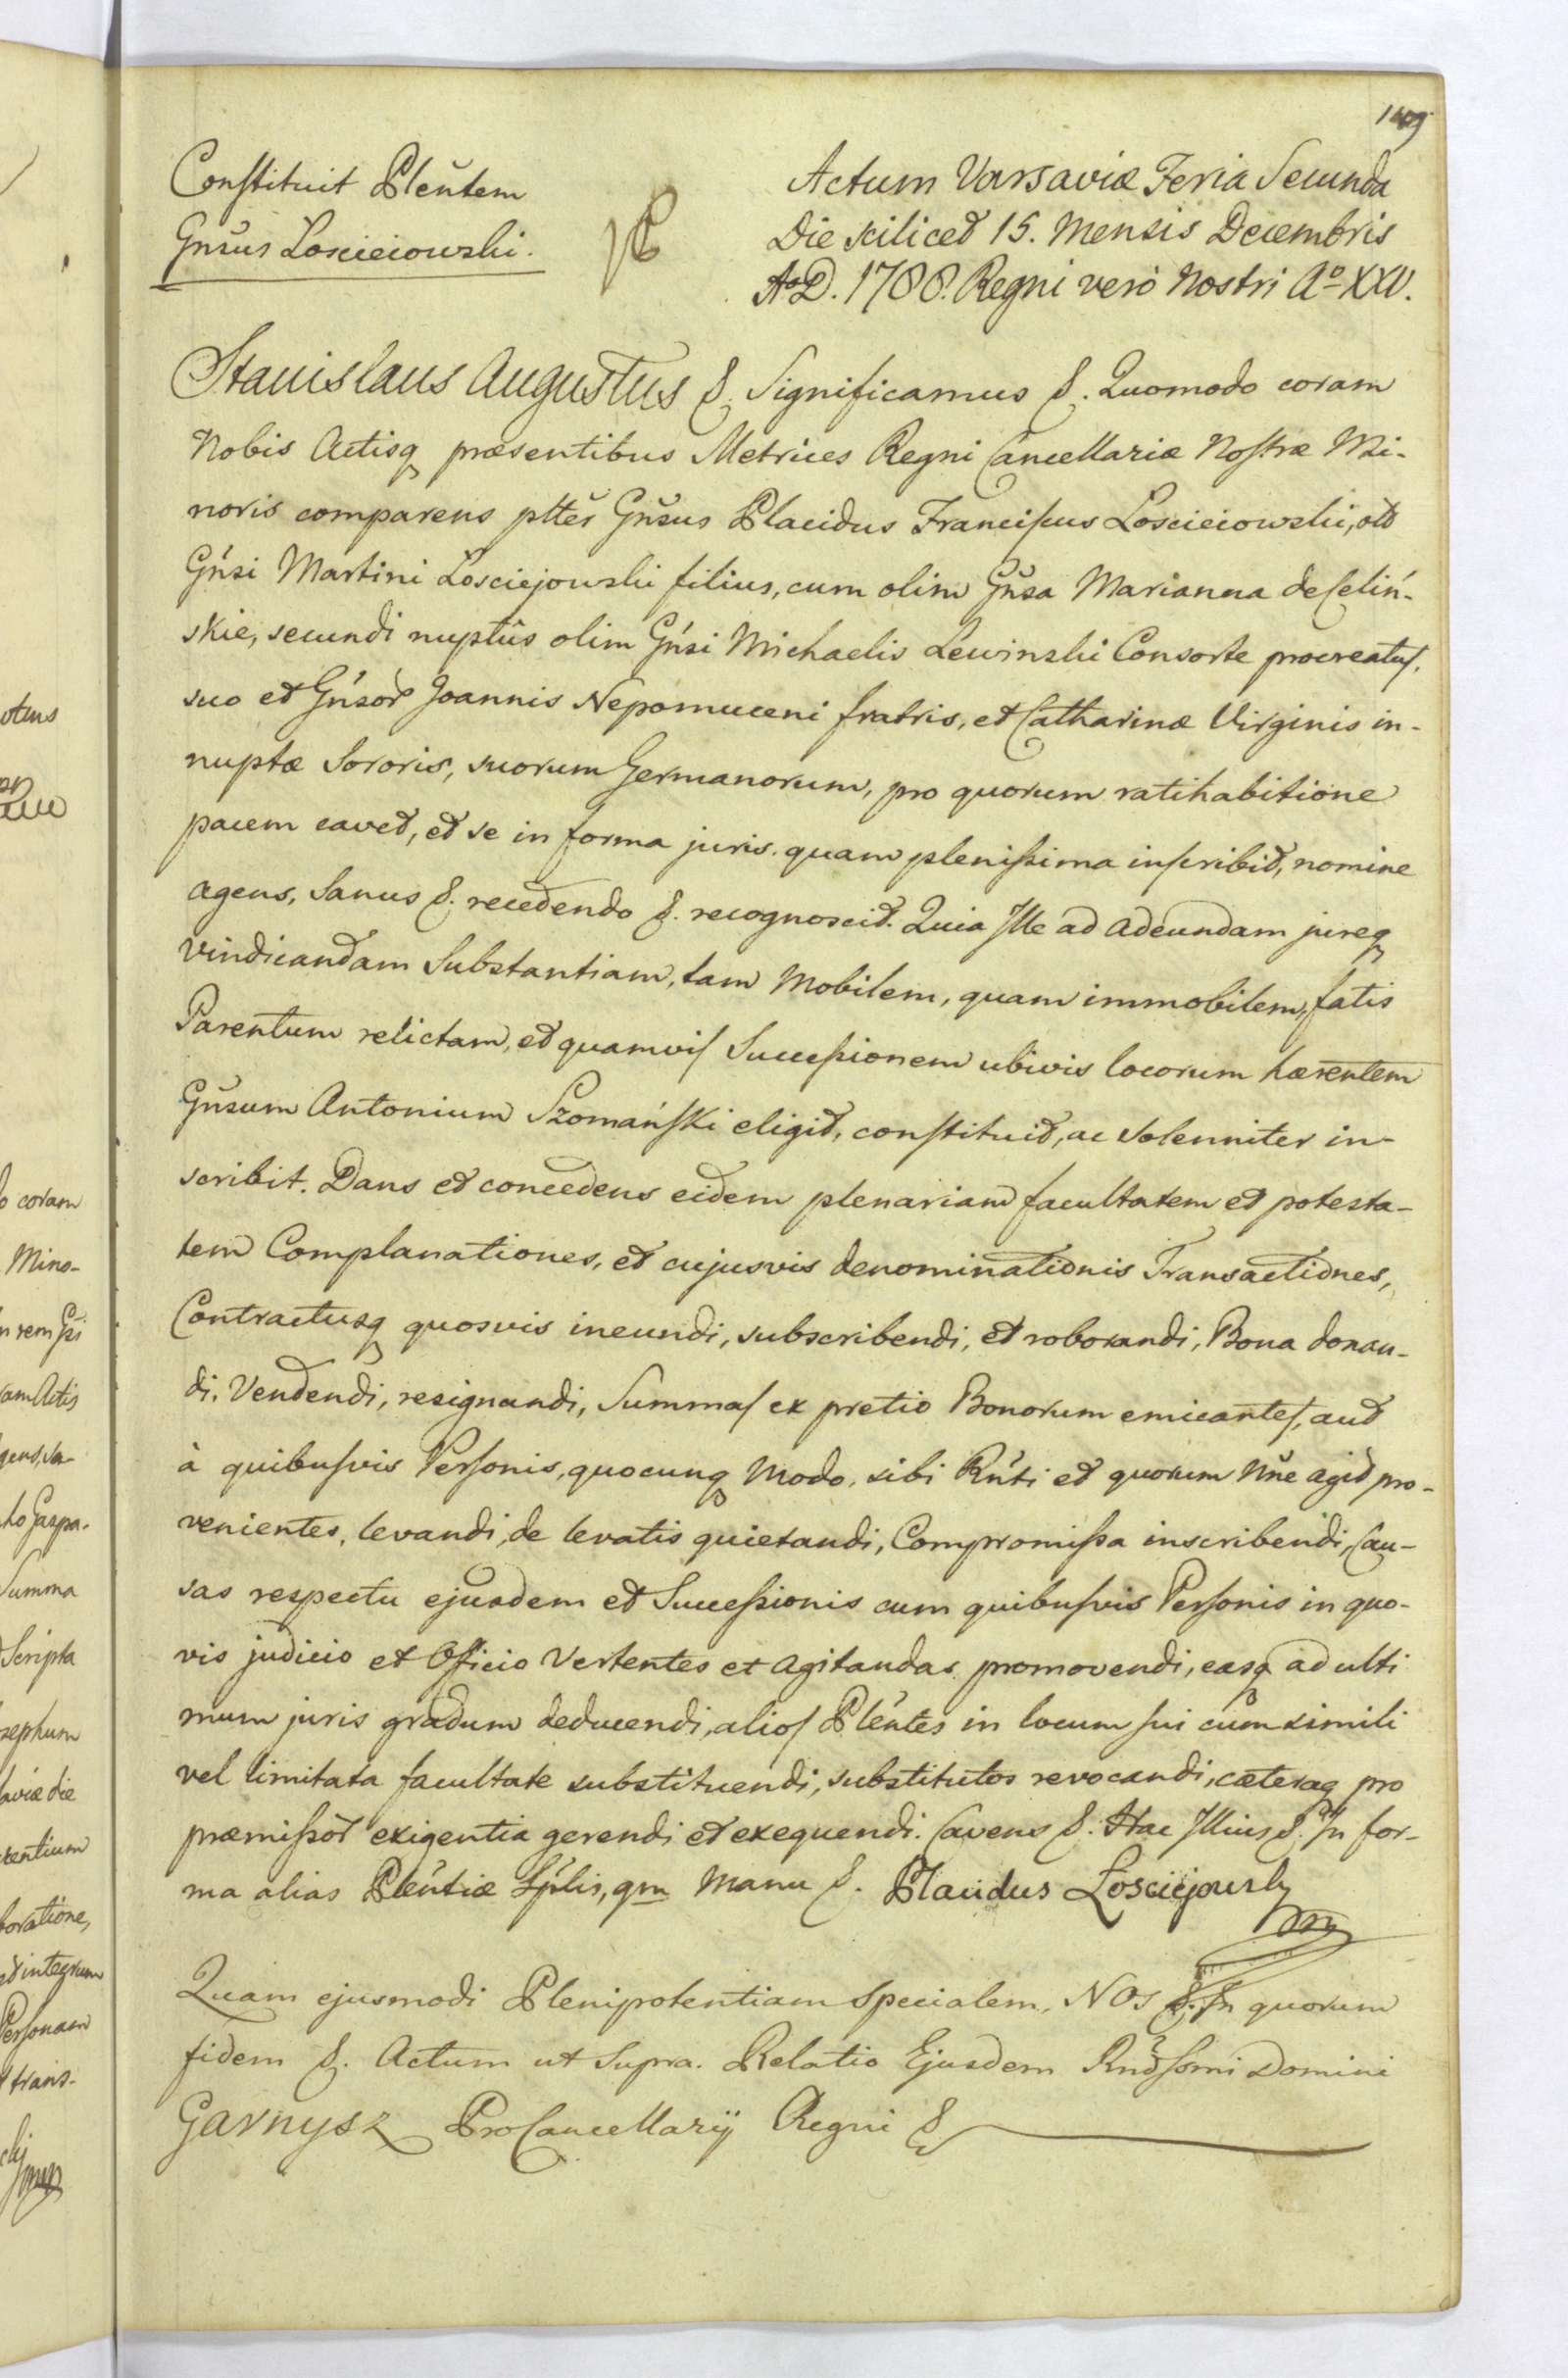 1109
Constituit Pleñtem
Gñsus Łosciciowski.
Actum Varsaviæ Feria Secunda
Die scilicet 15. Mensis Decembris
AoD. 1788. Regni verò Nostri Ao XXV.
Stanislaus Augustus &. Significamus &. Quomodo coram
Nobis Actisq præsentibus Metrices Regni Cancellariæ Nostræ Mi-
noris comparens ptter Gñsus Placidus Franciscus Łosciciowski, olb
Gñsi Martini Łosciejowski filius, cum olim Gñsa Marianna de Celiń-
skie, secundi nuptûs olim Gñsi Michaelis Lewinski Consorte procreatus,
suo et Gñsor Joannis Nepomuceni fratris, et Catharinæ Virginis in-
nuptæ Sororis, suorum Germanorum, pro quorum ratihabitione
pacem cavet, et se in forma juris quam plenissima inscribit, nomine
agens, Sanus &. recedendo &. recognoscit. Quia Ille ad adeundam jureq
vindicandam Substantiam, tam Mobilem, quam immobilem, fatis
Parentum relictam, et quamvis Successionem ubivis locorum hærentem
Gñsum Antonium Szomański eligit, constituit, ac solenniter in-
scribit. Dans et concedens eidem plenariam facultatem et potesta-
tem Complanationes, et cujusvis denominationis Transactiones,
Contractusq quosvis ineundi, subscribendi, et roborandi, Bona donan-
di, Vendendi, resignandi, Summas ex pretio Bonorum emicantes, aut
à quibusvis Personis, quocunq Modo, sibi Rñti et quorum Nñe agit pro-
venientes, levandi, de levatis quietandi, Compromissa inscribendi, Cau-
sas respectu ejusdem et Successionis cum quibusvis Personis in quo-
vis judicio et Officio Vertentes et Agitandas promovendi, easq ad ulti
mum juris gradum deducendi, alios Pleñtes in locum sui cum simili
vel limitata facultate substituendi, substitutos revocandi, cæteraq pro
præmissor exigentia gerendi et exequendi. Cavens &. Hac Illius &. In for-
ma alias Pleñtiæ Splis, qm Manu &. Placidus Łosciejowski
mp
Quam ejusmodi Plenipotentiam Specialem, NOS &. In quorum
fidem &. Actum ut Supra. Relatio Ejusdem Rndssmi Domini
Garnysz ProCancellarij Regni &